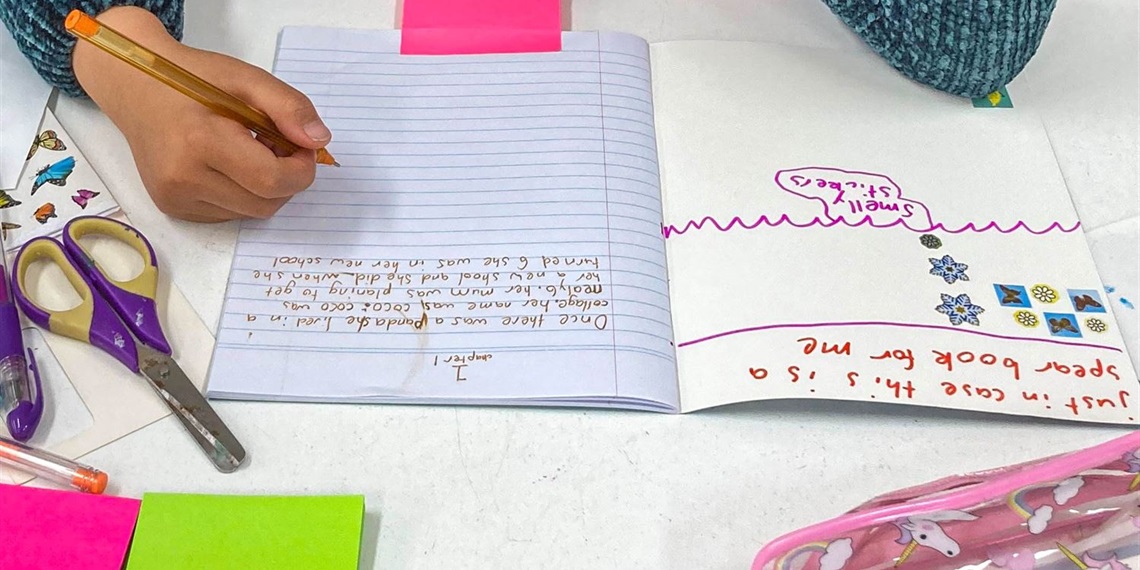 just in case this is a
spear book for me
smelly
stickers
1
chapter 1
Once there was a Panda she lived in a
collage. her name was coco. coco was
nealy 6. her mum was planing to get
her a new shool and she did when she
turned 6 she was in her new school